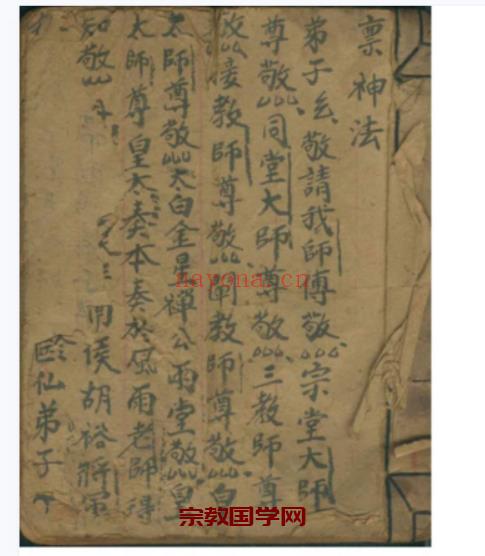 禀神法
弟子么敬請我師傅敬宗堂大師
尊敬同堂大師尊敬三教師尊
敬接教師尊敬開教師尊敬白
太師尊敬太白金星禅公雨堂敬皇
太師尊皇太奏本奏於風雨老師得
知敬
用侯胡裕將軍
仙弟子
nayona.cn
宗教国学网